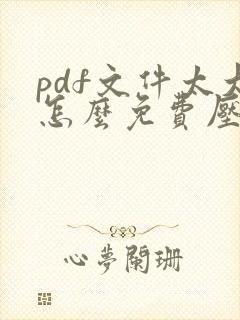 pdf文件太大
怎麽免費壓
心夢闌珊